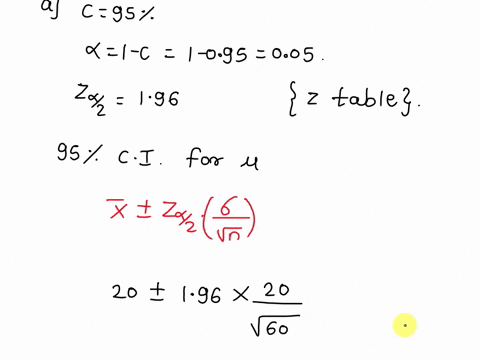 a) C = 95%
α = 1-C = 1-0.95 = 0.05.
Zα/2 = 1.96 {z table}.
95% C.I. for μ
x̄ ± Zα/2·(σ/√n)
20 ± 1.96 × 20/√60